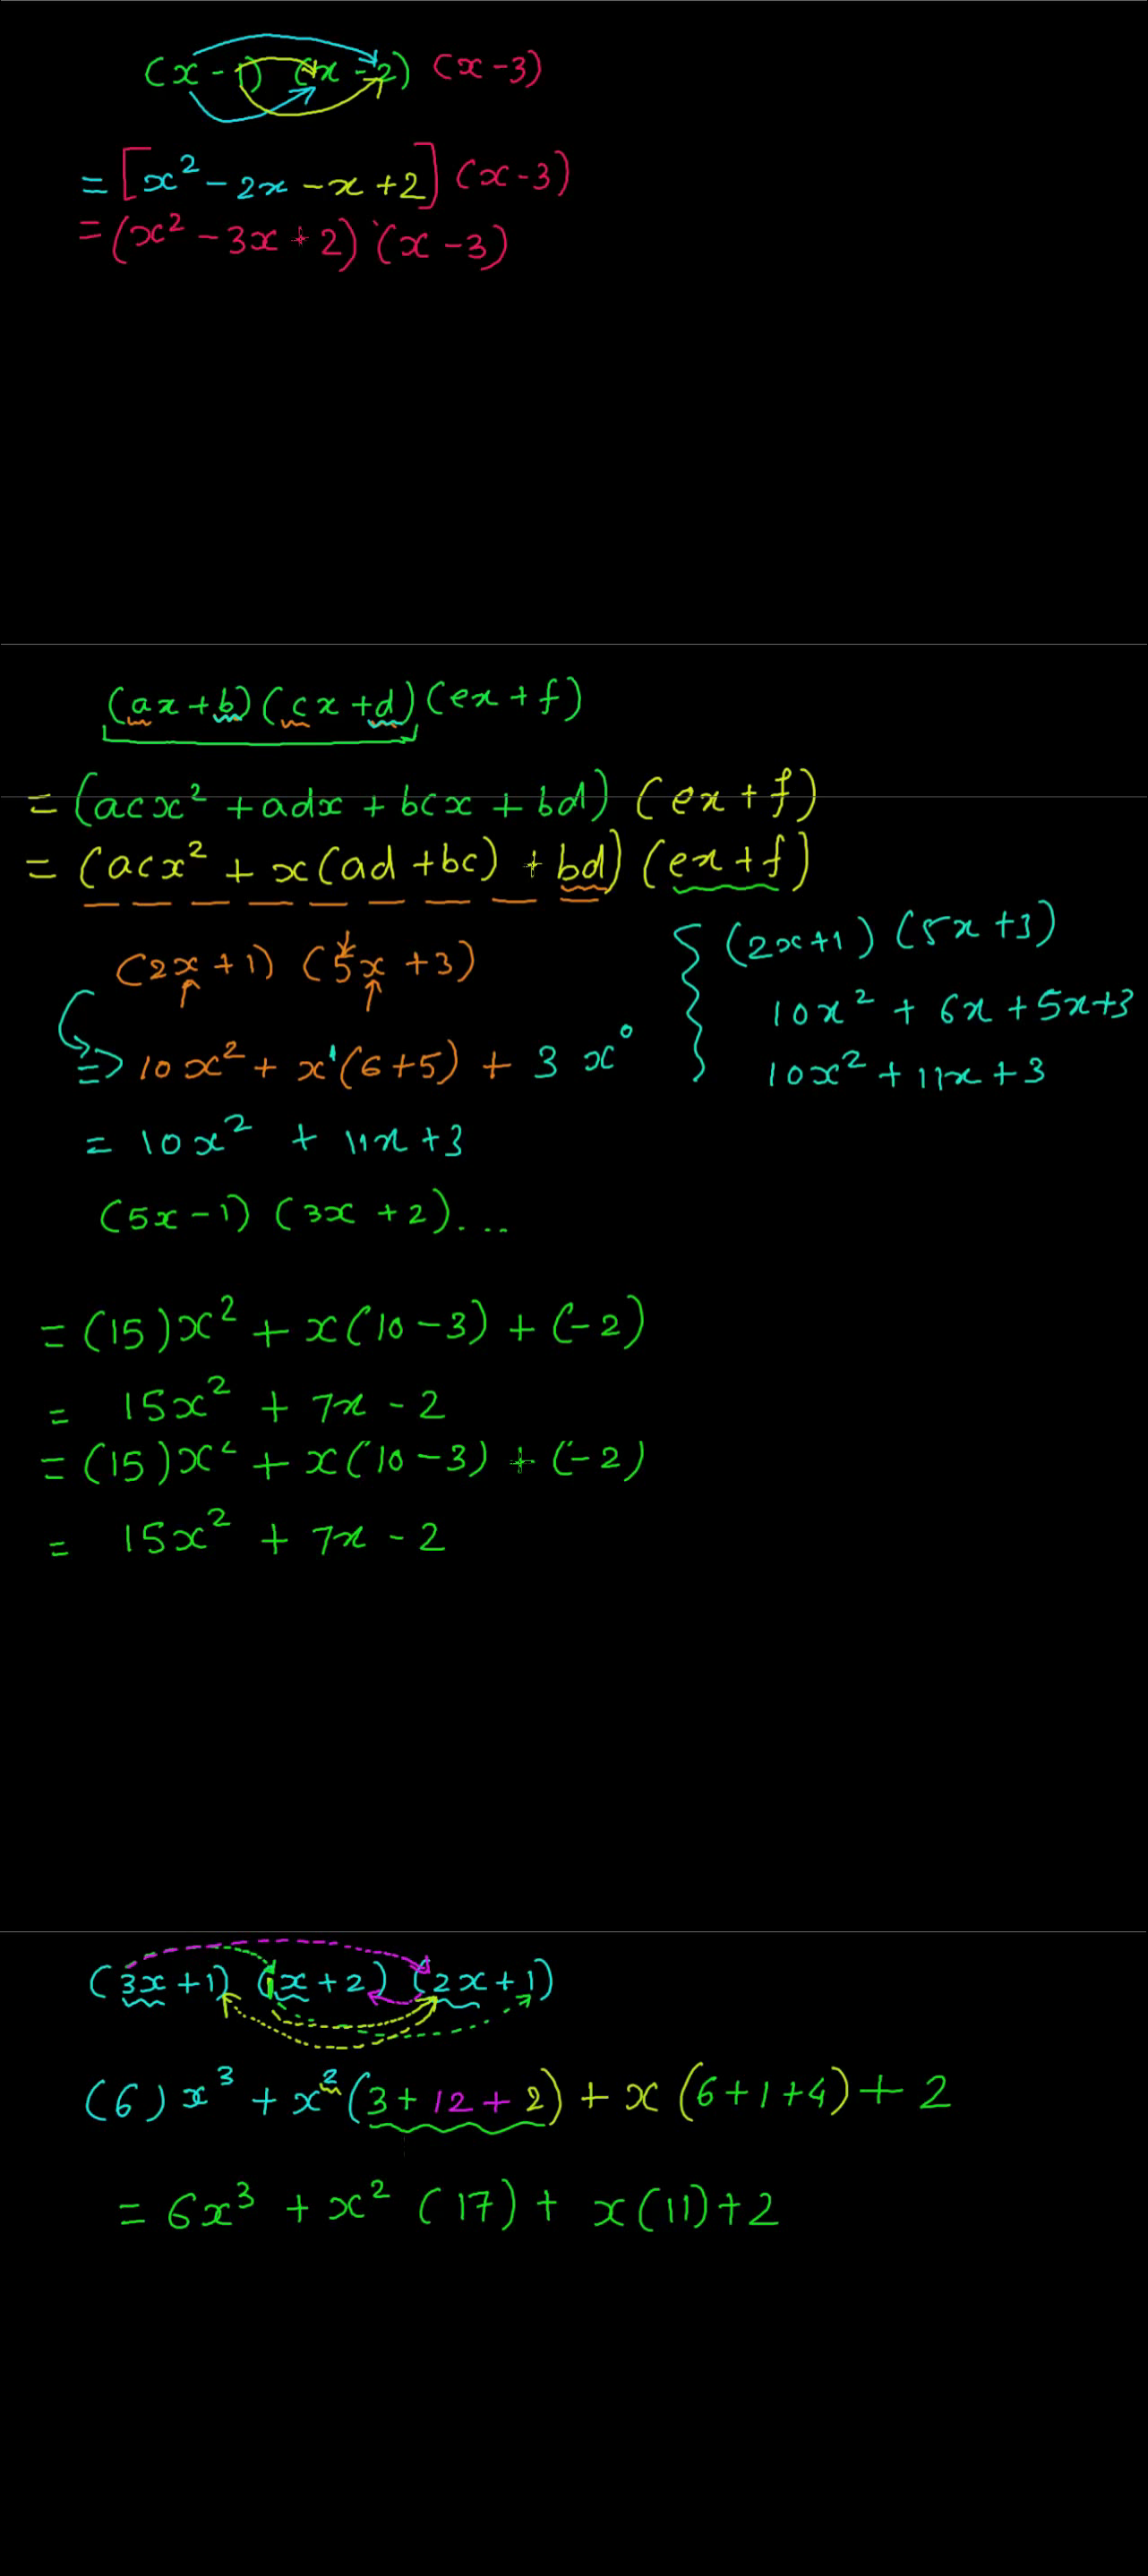 (x - 1) (x - 2) (x - 3)
= [x² - 2x - x + 2] (x - 3)
= (x² - 3x + 2) (x - 3)
(ax + b) (cx + d) (ex + f)
= (acx² + adx + bcx + bd) (ex + f)
= (acx² + x(ad + bc) + bd) (ex + f)
(2x + 1) (5x + 3)
=> 10x² + x¹(6 + 5) + 3 x⁰
= 10x² + 11x + 3
{ (2x + 1) (5x + 3)
10x² + 6x + 5x + 3
10x² + 11x + 3
(5x - 1) (3x + 2) ...
= (15)x² + x(10 - 3) + (-2)
= 15x² + 7x - 2
= (15)x² + x(10 - 3) + (-2)
= 15x² + 7x - 2
(3x + 1) (1x + 2) (2x + 1)
(6) x³ + x² (3 + 12 + 2) + x (6 + 1 + 4) + 2
= 6x³ + x² (17) + x(11) + 2